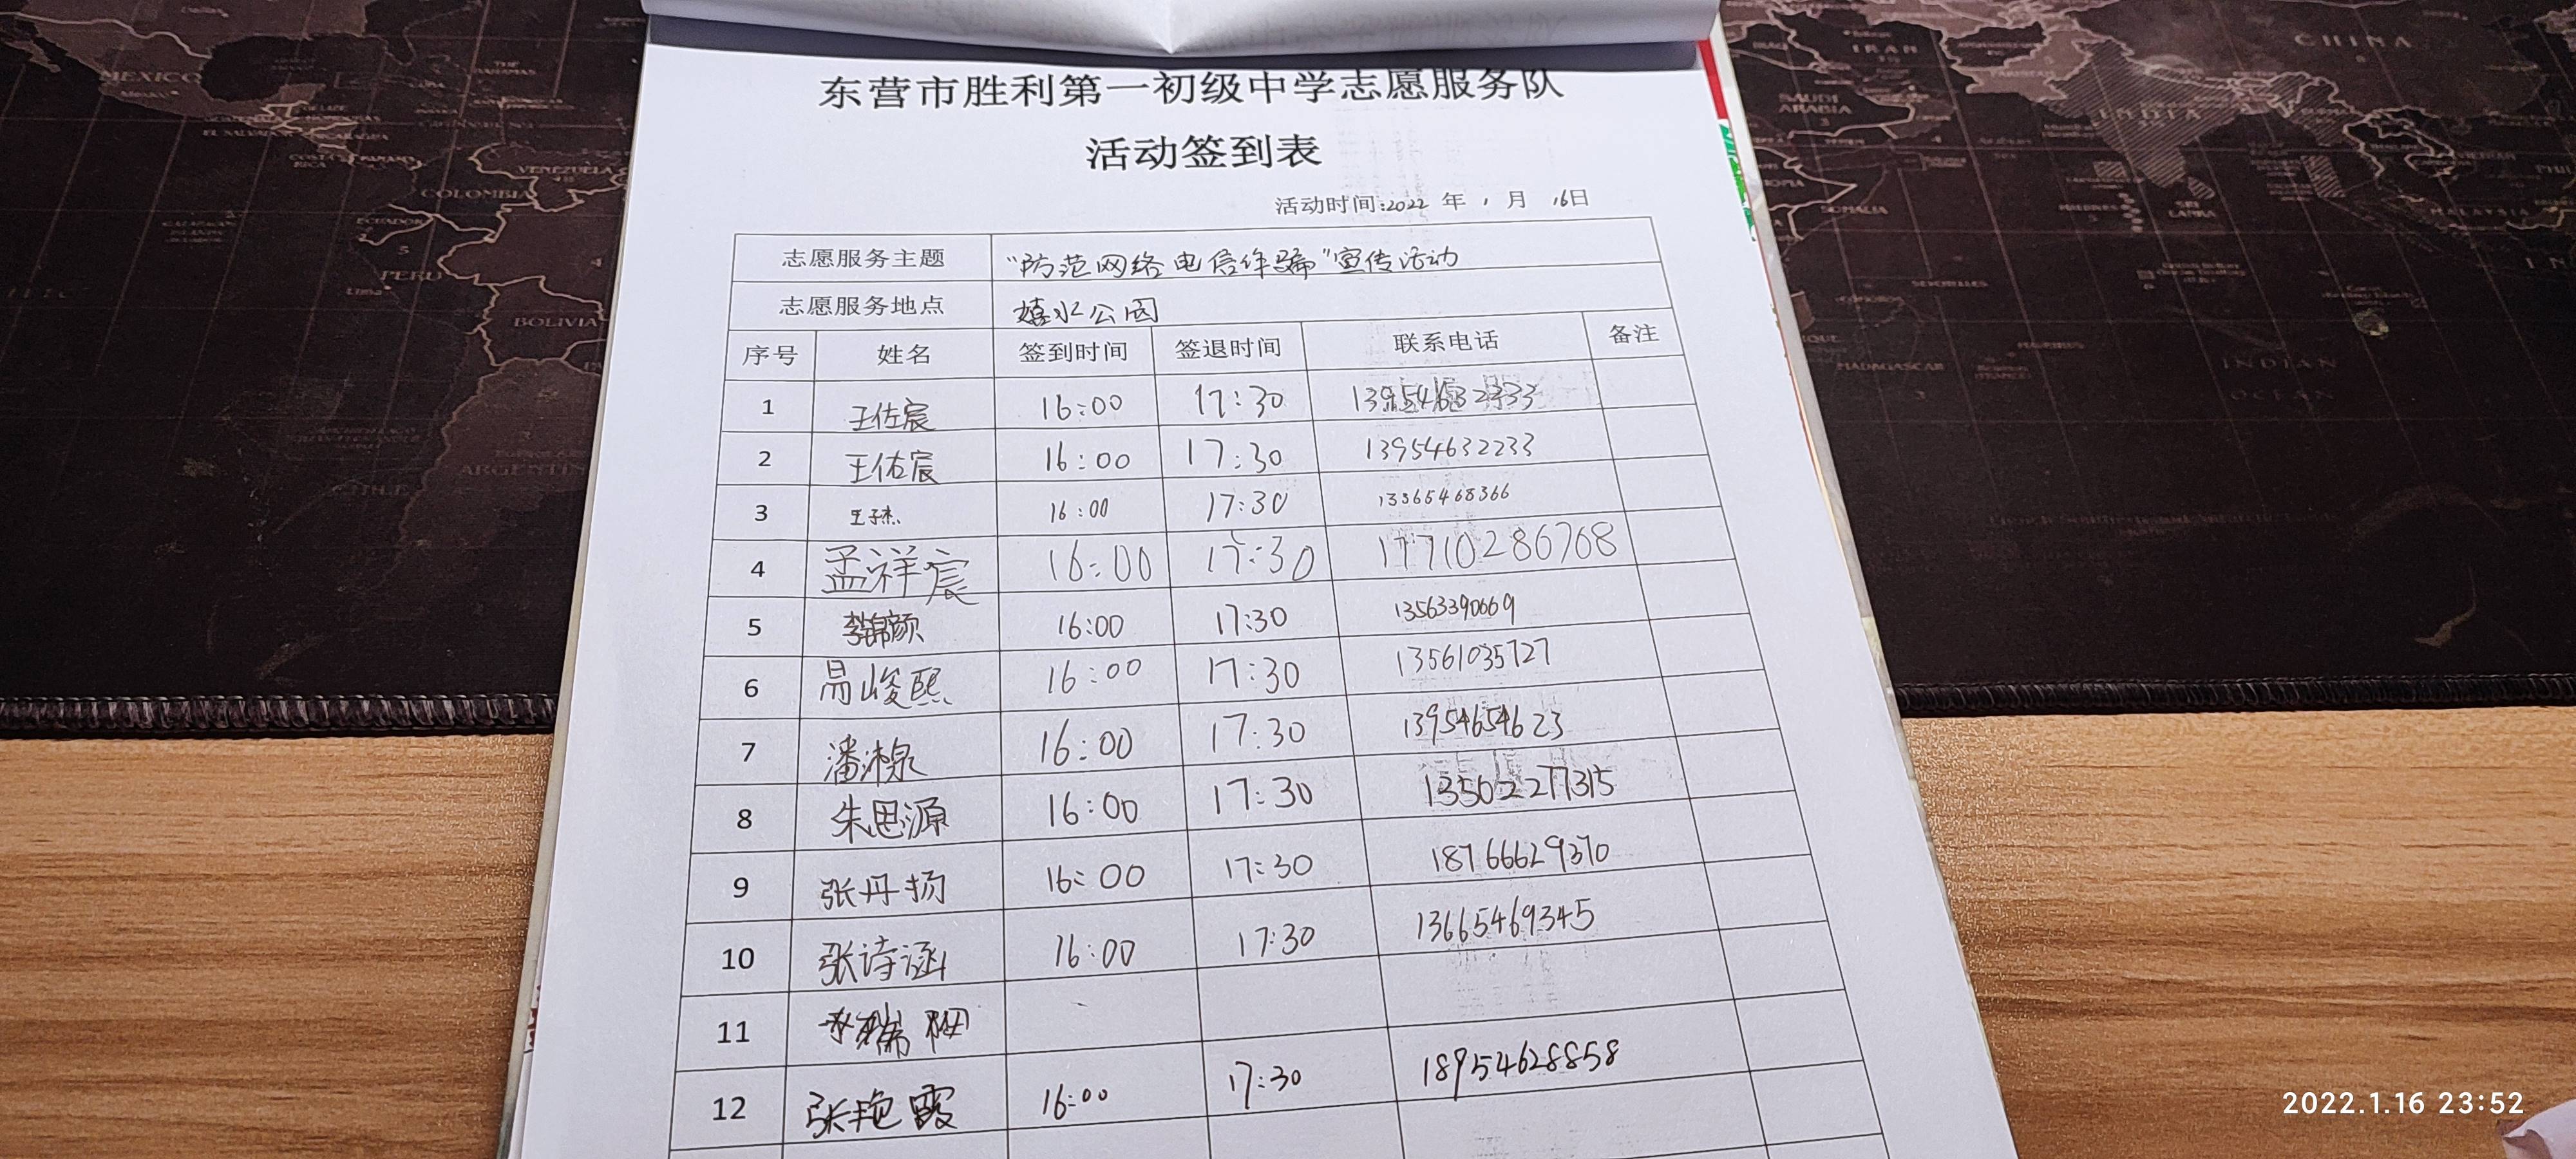 东营市胜利第一初级中学志愿服务队
活动签到表
活动时间:2022 年 1 月 16日
志愿服务主题 “防范网络电信诈骗”宣传活动
志愿服务地点 嬉水公园
序号 姓名 签到时间 签退时间 联系电话 备注
1 王佐宸 16:00 17:30
2 王佑宸 16:00 17:30 13954632233
3 王子杰 16:00 17:30 13365468366
4 孟祥宸 16:00 17:30 17710286768
5 李锦颜 16:00 17:30 13563390669
6 峻熙 16:00 17:30 13561035727
7 潘湘泉 16:00 17:30 13954654623
8 朱思源 16:00 17:30
9 张丹扬 16:00 17:30 18766629370
10 张诗涵 16:00 17:30 13665469345
11 李瑞
12 张艳霞 16:00 17:30 18954628858
MEXICO
VENEZUELA
COLOMBIA
ECUADOR
PERU
Lima
BOLIVIA
ARGENTINA
IRAN
SAUDI
ARABIA
SOMALIA
MADAGASCAR
INDIA
SRI
LANKA
CHINA
INDIAN
OCEAN
2022.1.16 23:52